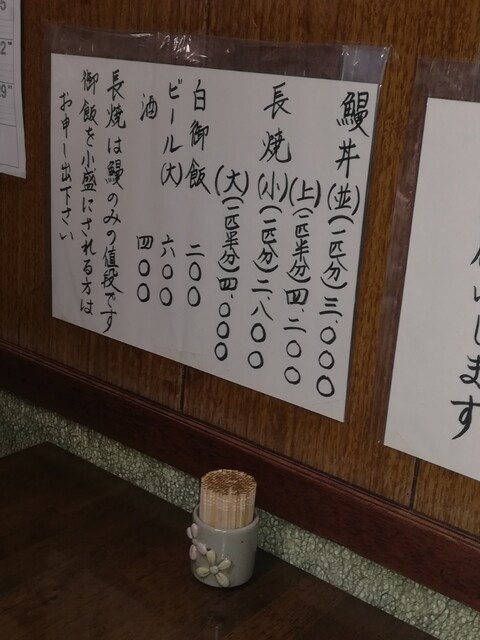 鰻丼(並)(一匹分)三.〇〇〇
(上)(一匹半分)四.二〇〇
長焼(小)(一匹分)二.八〇〇
(大)(一匹半分)四.〇〇〇
白御飯 二〇〇
ビール(大) 六〇〇
酒 四〇〇
長焼は鰻のみの値段です
御飯を小盛にされる方は
お申し出下さい
します